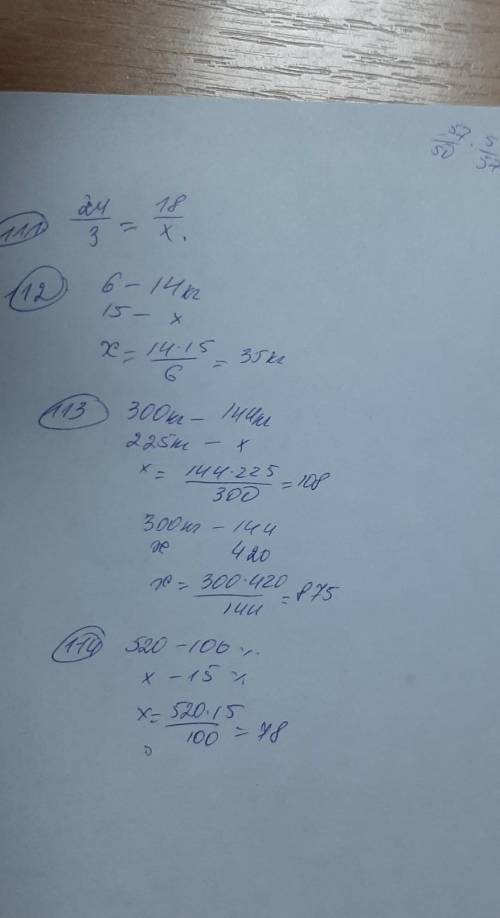 111) 24/3 = 18/x.
112) 6 – 14кг
15 – x
x = 14·15/6 = 35кг
113) 300кг – 144кг
225кг – x
x = 144·225/300 = 108
300кг – 144
x 420
x = 300·420/144 = 875
114) 520 – 100%
x – 15%
x = 520·15/100 = 78